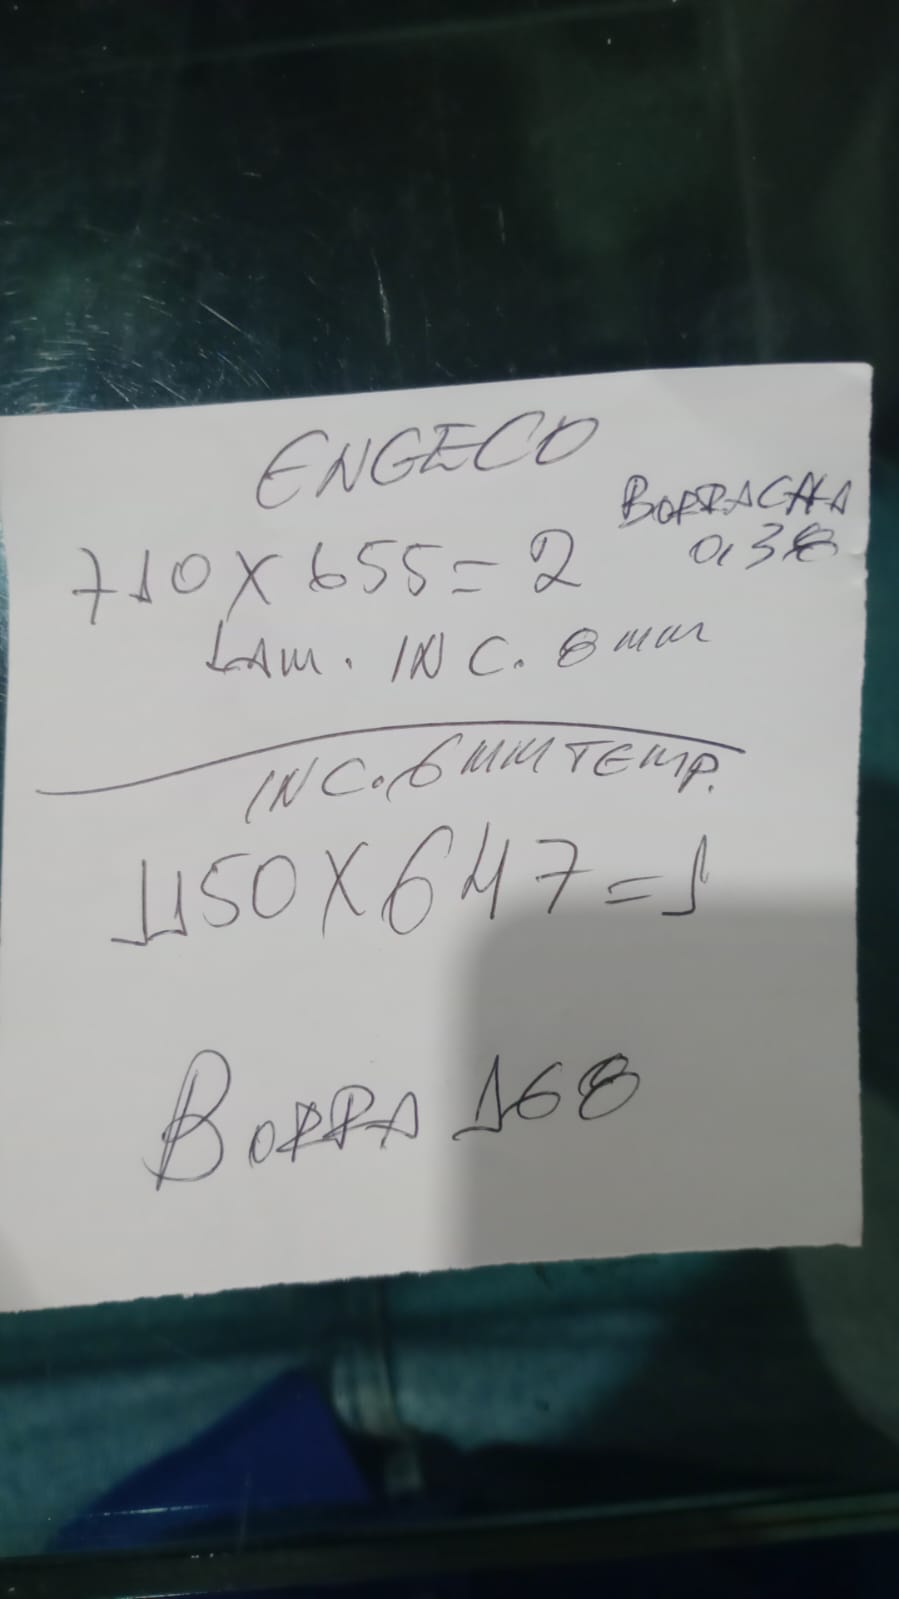 ENGECO
BORRACHA
0,38
710 X 655 = 2
LAM. INC. 8 mm
INC. 6 MM TEMP.
1150 X 647 = 1
BORRA 168